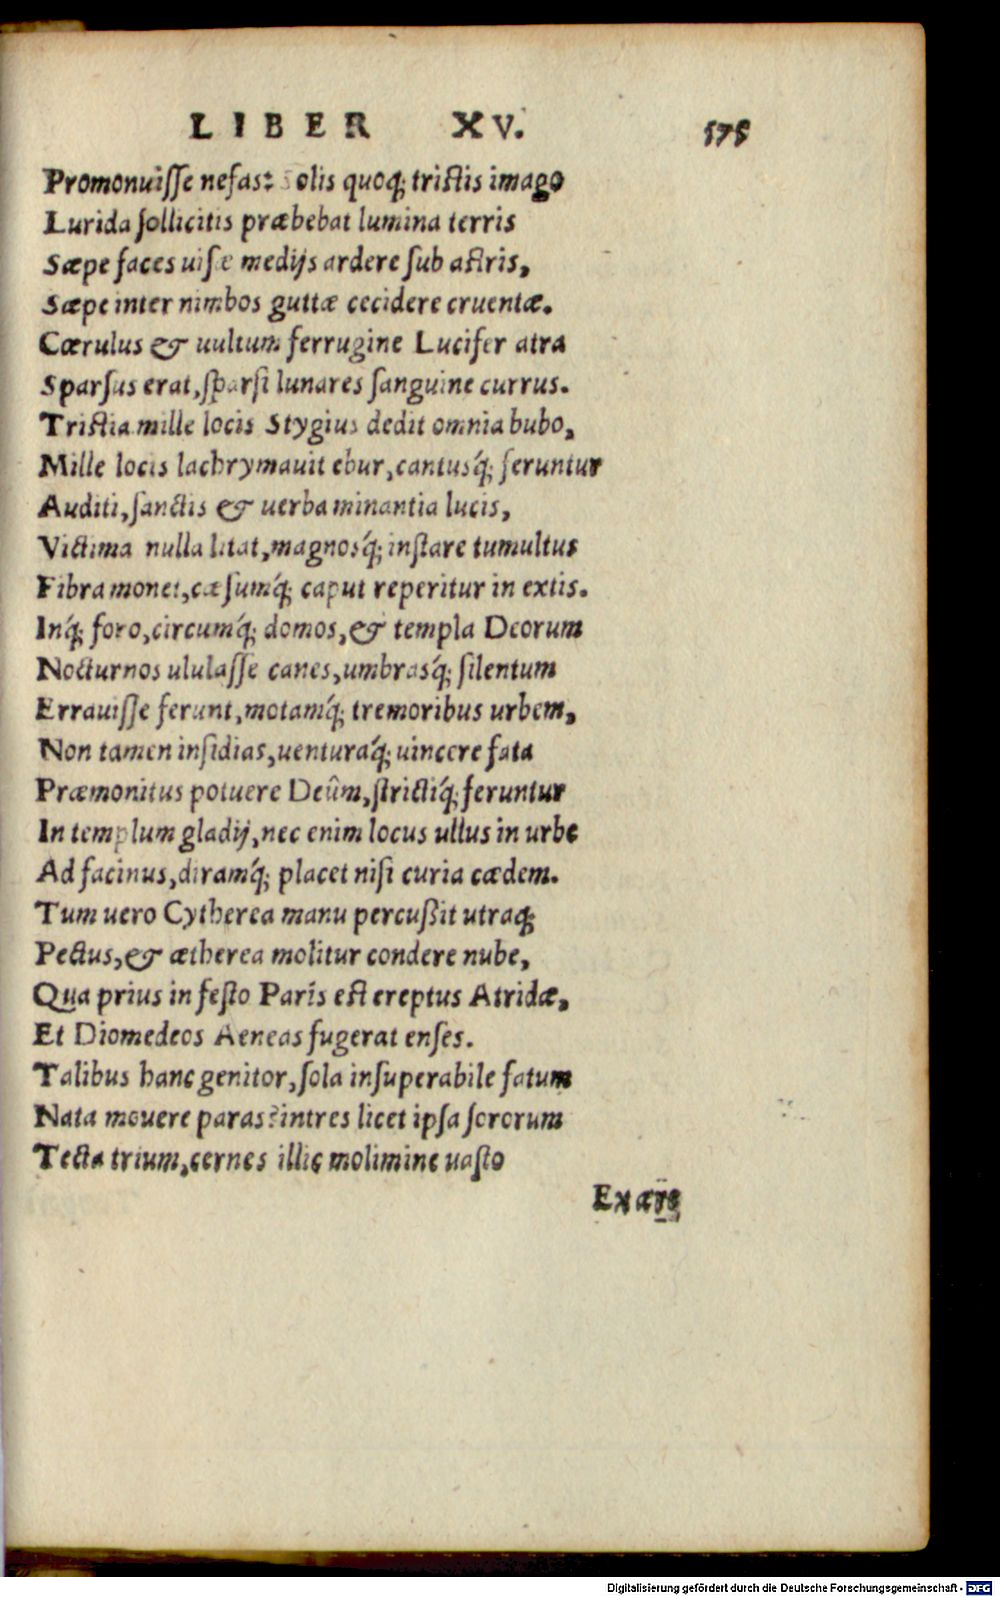 LIBER XV. 575
Promonuisse nefas: Solis quoq; tristis imago
Lurida sollicitis præbebat lumina terris
Sæpe faces uisæ medijs ardere sub astris,
Sæpe inter nimbos guttæ cecidere cruentæ.
Cœrulus & uultum ferrugine Lucifer atra
Sparsus erat, sparsi lunares sanguine currus.
Tristia mille locis Stygius dedit omnia bubo,
Mille locis lachrymauit ebur, cantusq́; feruntur
Auditi, sanctis & uerba minantia lucis,
Victima nulla litat, magnosq́; instare tumultus
Fibra monet, cæsumq́; caput reperitur in extis.
Inq́; foro, circumq́; domos, & templa Deorum
Nocturnos ululasse canes, umbrasq́; silentum
Errauisse ferunt, motamq́; tremoribus urbem,
Non tamen insidias, uenturaq́; uincere fata
Præmonitus potuere Deûm, strictiq́; feruntur
In templum gladij, nec enim locus ullus in urbe
Ad facinus, diramq́; placet nisi curia cædem.
Tum uero Cytherea manu percußit utraq;
Pectus, & ætherea molitur condere nube,
Qua prius in festo Paris est ereptus Atridæ,
Et Diomedeos Aeneas fugerat enses.
Talibus hanc genitor, sola insuperabile fatum
Nata mouere paras? intres licet ipsa sororum
Tecta trium, cernes illic molimine uasto
Ex ære
Digitalisierung gefördert durch die Deutsche Forschungsgemeinschaft - DFG